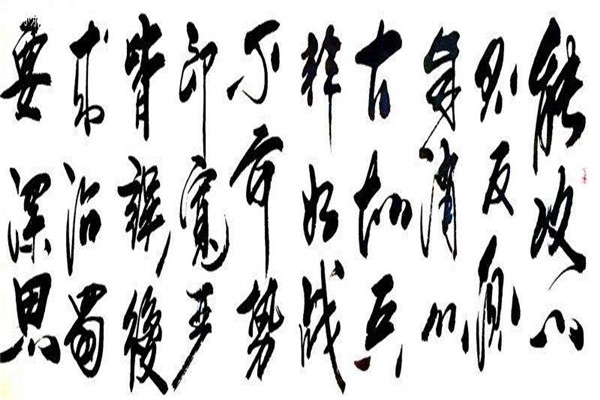 能攻心
则反侧
自消从
古知兵
非好战
不审勢
即寬严
皆誤後
来治蜀
要深思